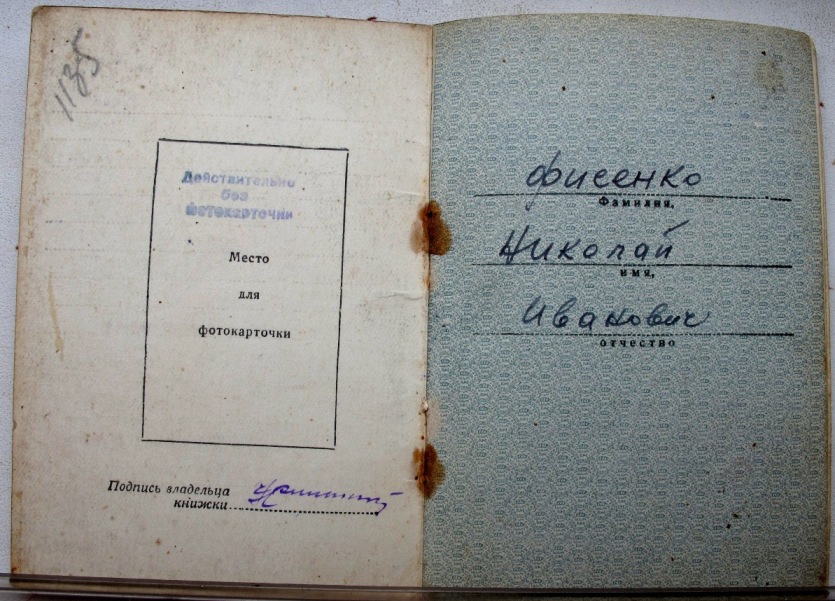 1135
Действительно
без
фотокарточки
Место
для
фотокарточки
Подпись владельца
книжки
Фисенко
Фамилия,
Николай
имя,
Иванович
отчество